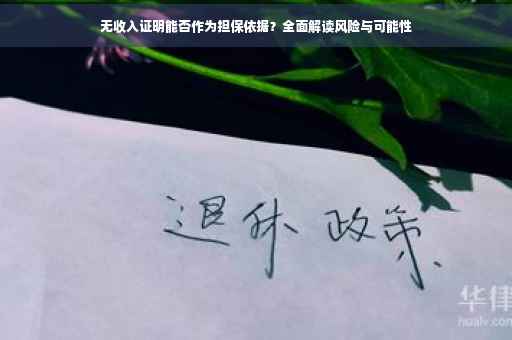 无收入证明能否作为担保依据？全面解读风险与可能性
退休 政策
华律
hualv.com